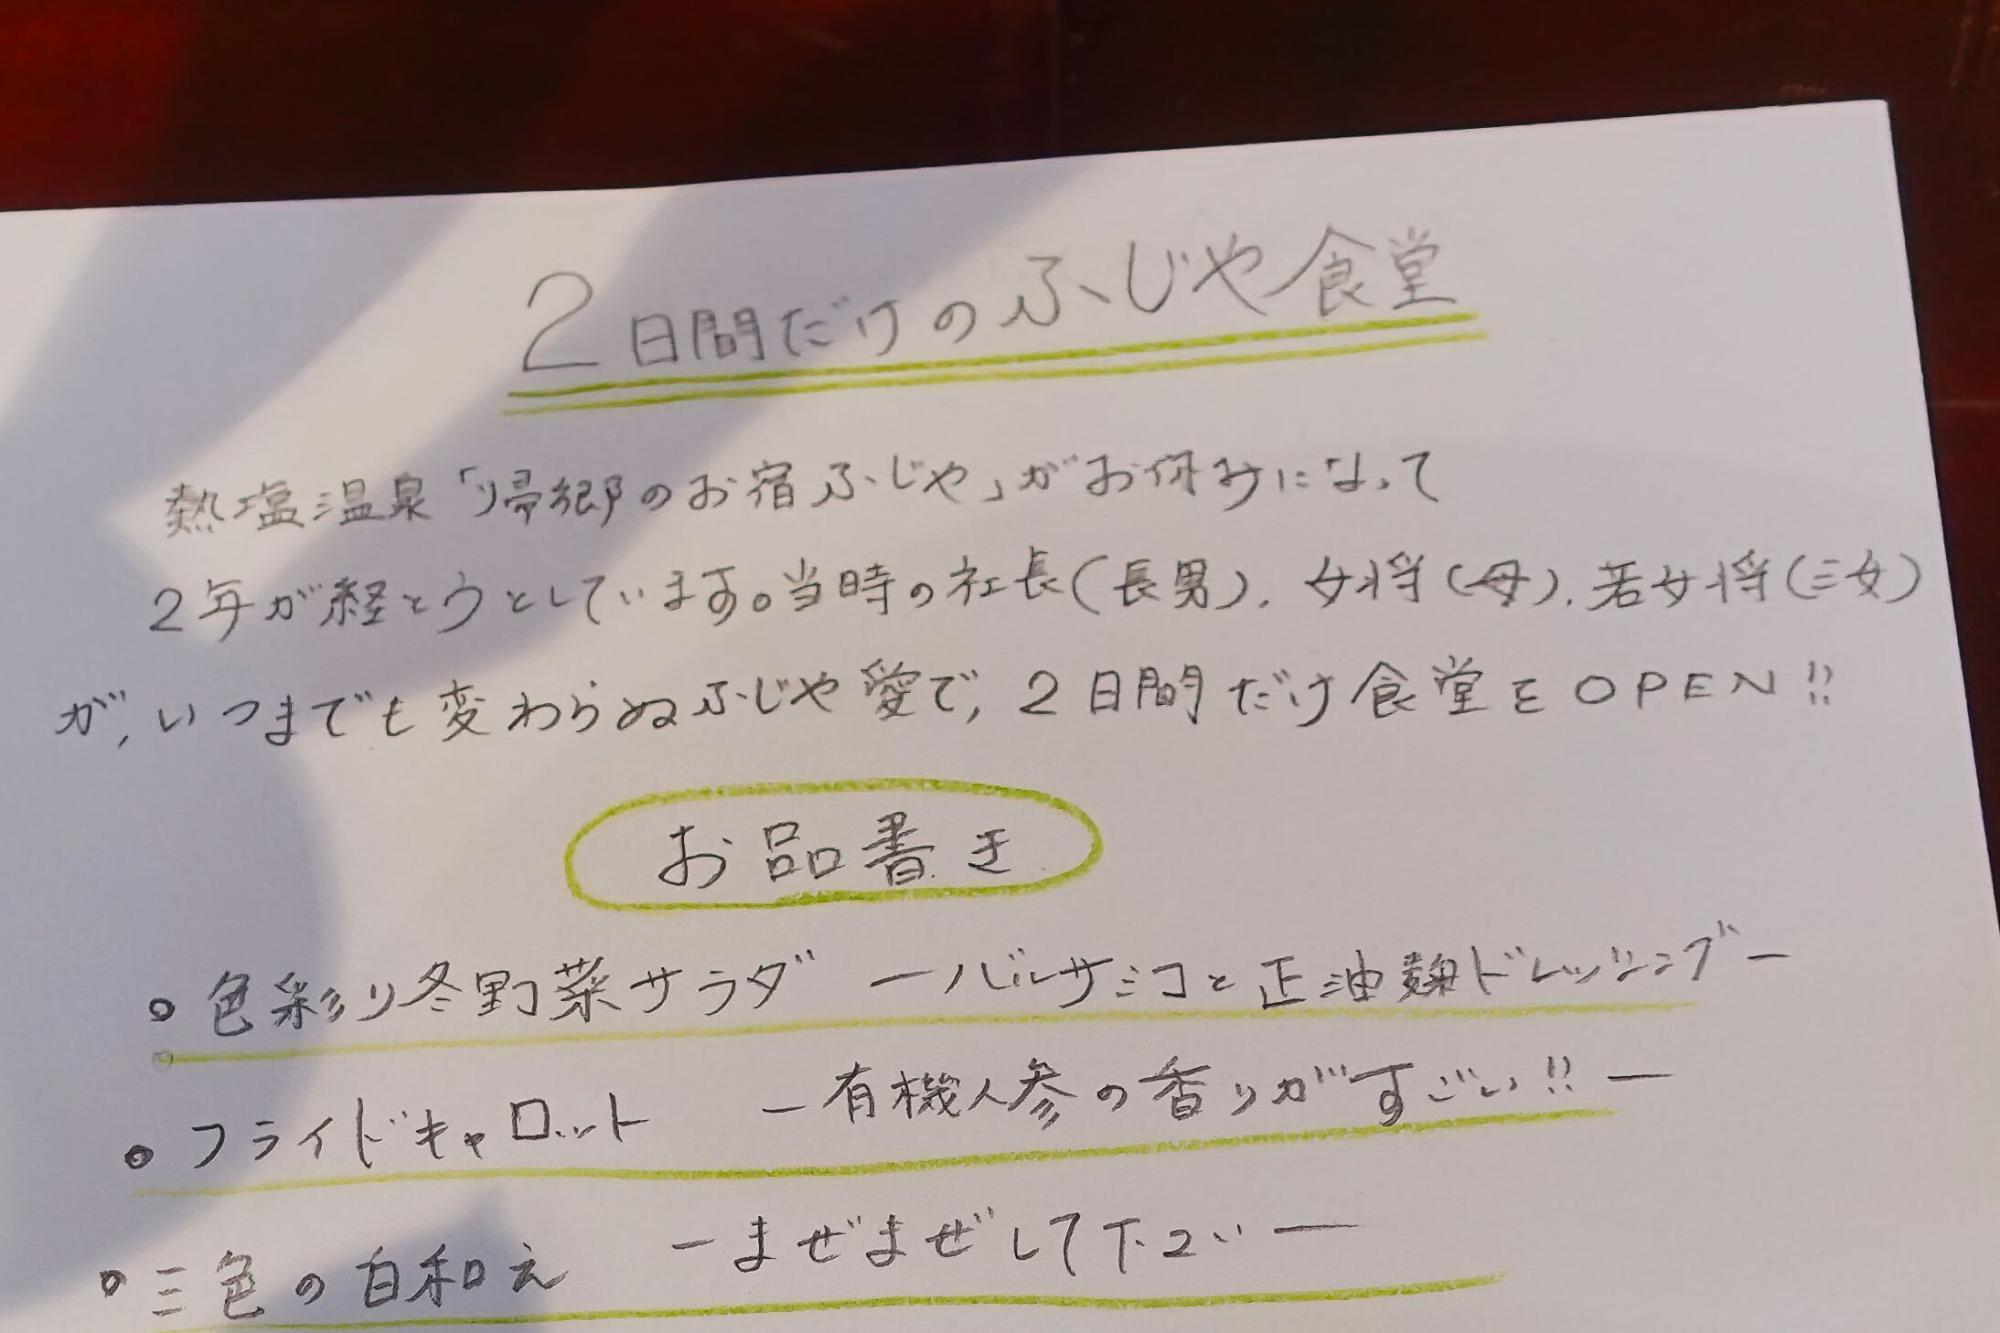 2日間だけのふじや食堂
熱塩温泉「帰郷のお宿ふじや」がお休みになって
2年が経とうとしています。当時の社長(長男)、女将(母)、若女将(三女)
が、いつまでも変わらぬふじや愛で、2日間だけ食堂をOPEN!!
お品書き
。色彩り冬野菜サラダ ーバルサミコと正油麹ドレッシングー
。フライドキャロット ー有機人参の香りがすごい!!ー
。三色の白和え ーまぜまぜして下さいー